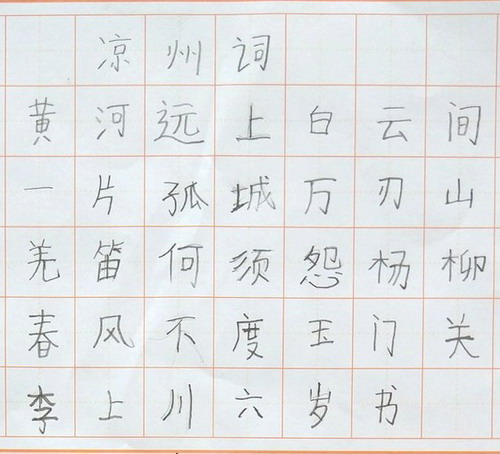 凉州词
黄河远上白云间
一片孤城万刃山
羌笛何须怨杨柳
春风不度玉门关
李上川六岁书